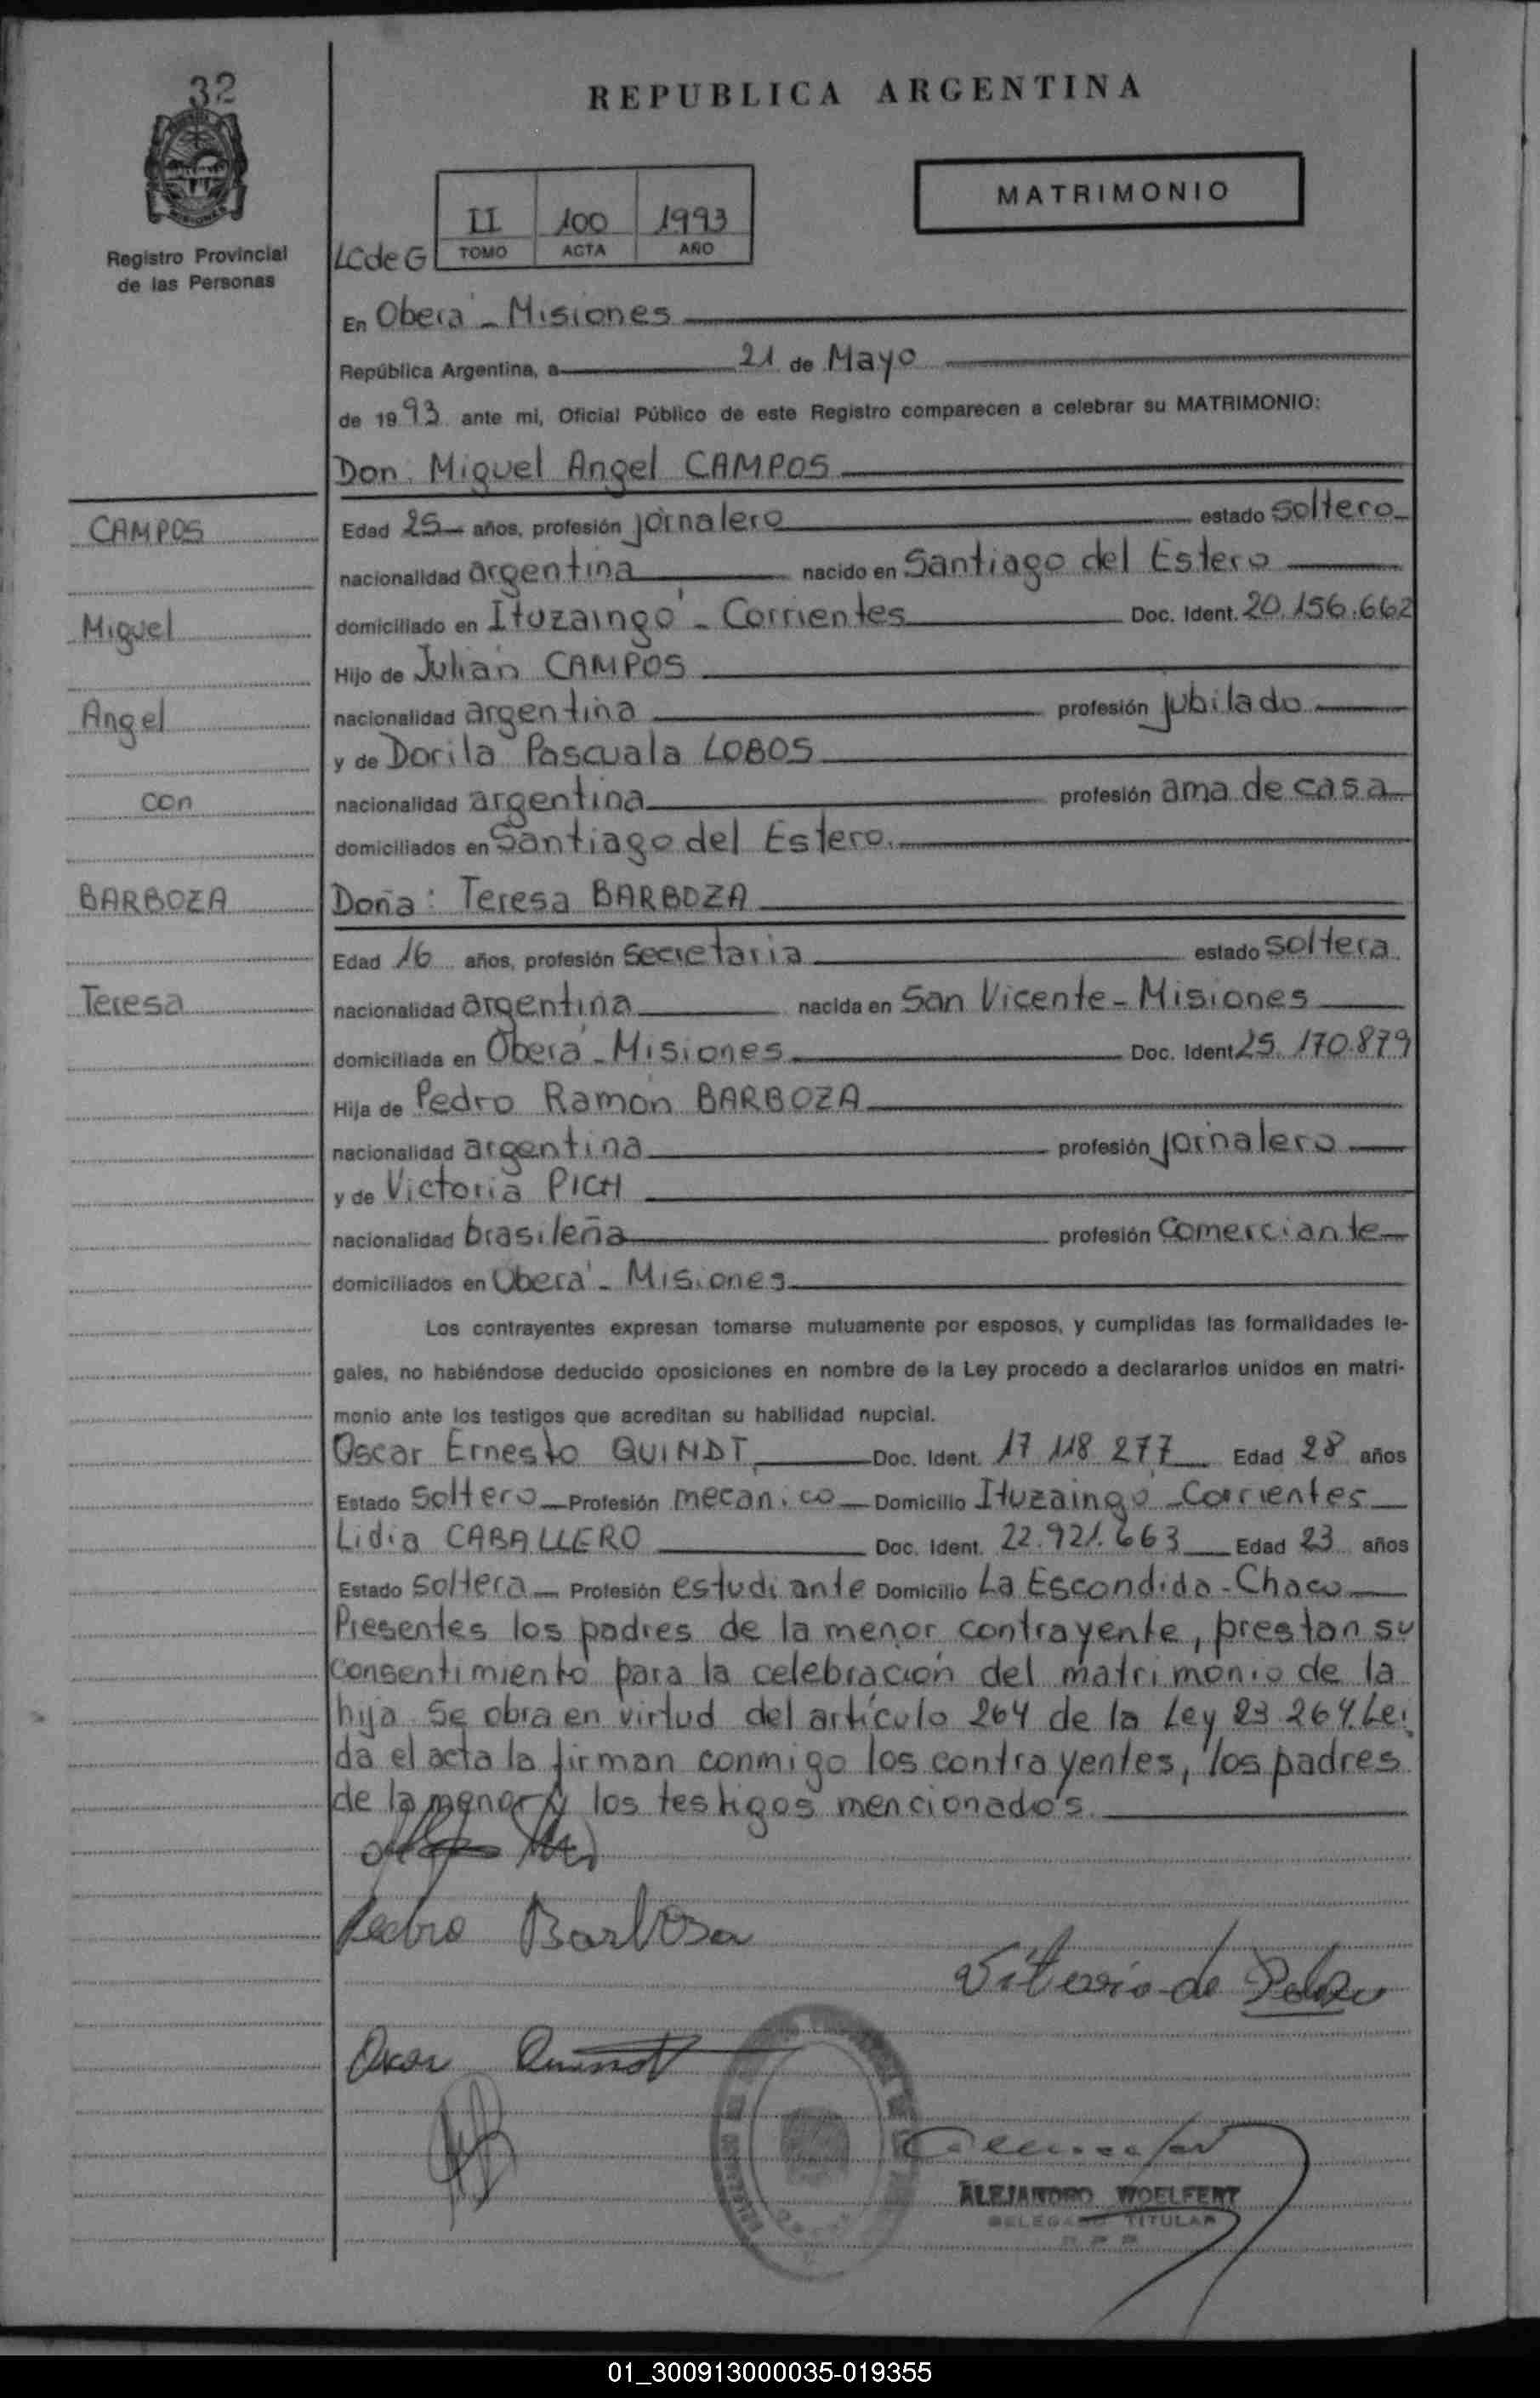 32
REPUBLICA ARGENTINA
MATRIMONIO
II 100 1993
TOMO ACTA AÑO
LCdeG
MISIONES
Registro Provincial
de las Personas
En Oberá - Misiones
República Argentina, a 21 de Mayo
de 1993 ante mi, Oficial Público de este Registro comparecen a celebrar su MATRIMONIO:
Don: Miguel Angel CAMPOS
CAMPOS
Miguel
Angel
con
BARBOZA
Teresa
Edad 25 años, profesión jornalero estado soltero
nacionalidad argentina nacido en Santiago del Estero
domiciliado en Ituzaingó - Corrientes Doc. Ident. 20.156.662
Hijo de Julián CAMPOS
nacionalidad argentina profesión jubilado
y de Dorila Pascuala LOBOS
nacionalidad argentina profesión ama de casa
domiciliados en Santiago del Estero.
Doña: Teresa BARBOZA
Edad 16 años, profesión secretaria estado soltera.
nacionalidad argentina nacida en San Vicente - Misiones
domiciliada en Oberá - Misiones Doc. Ident. 25.170.879
Hija de Pedro Ramón BARBOZA
nacionalidad argentina profesión jornalero
y de Victoria PICH
nacionalidad brasileña profesión comerciante
domiciliados en Oberá - Misiones
Los contrayentes expresan tomarse mutuamente por esposos, y cumplidas las formalidades le-
gales, no habiéndose deducido oposiciones en nombre de la Ley procedo a declararlos unidos en matri-
monio ante los testigos que acreditan su habilidad nupcial.
Oscar Ernesto QUINDT Doc. Ident. 17 118 277 Edad 28 años
Estado soltero Profesión mecanico Domicilio Ituzaingó - Corrientes
Lidia CABALLERO Doc. Ident. 22.921.663 Edad 23 años
Estado soltera Profesión estudiante Domicilio La Escondida - Chaco
Presentes los padres de la menor contrayente, prestan su
consentimiento para la celebración del matrimonio de la
hija. Se obra en virtud del artículo 264 de la Ley 23.264. Lei
da el acta la firman conmigo los contrayentes, los padres
de la menor y los testigos mencionados.
Pedro Barbosa
Oscar Quindt
ALEJANDRO WOELFERT
DELEGADO TITULAR
01_300913000035-019355